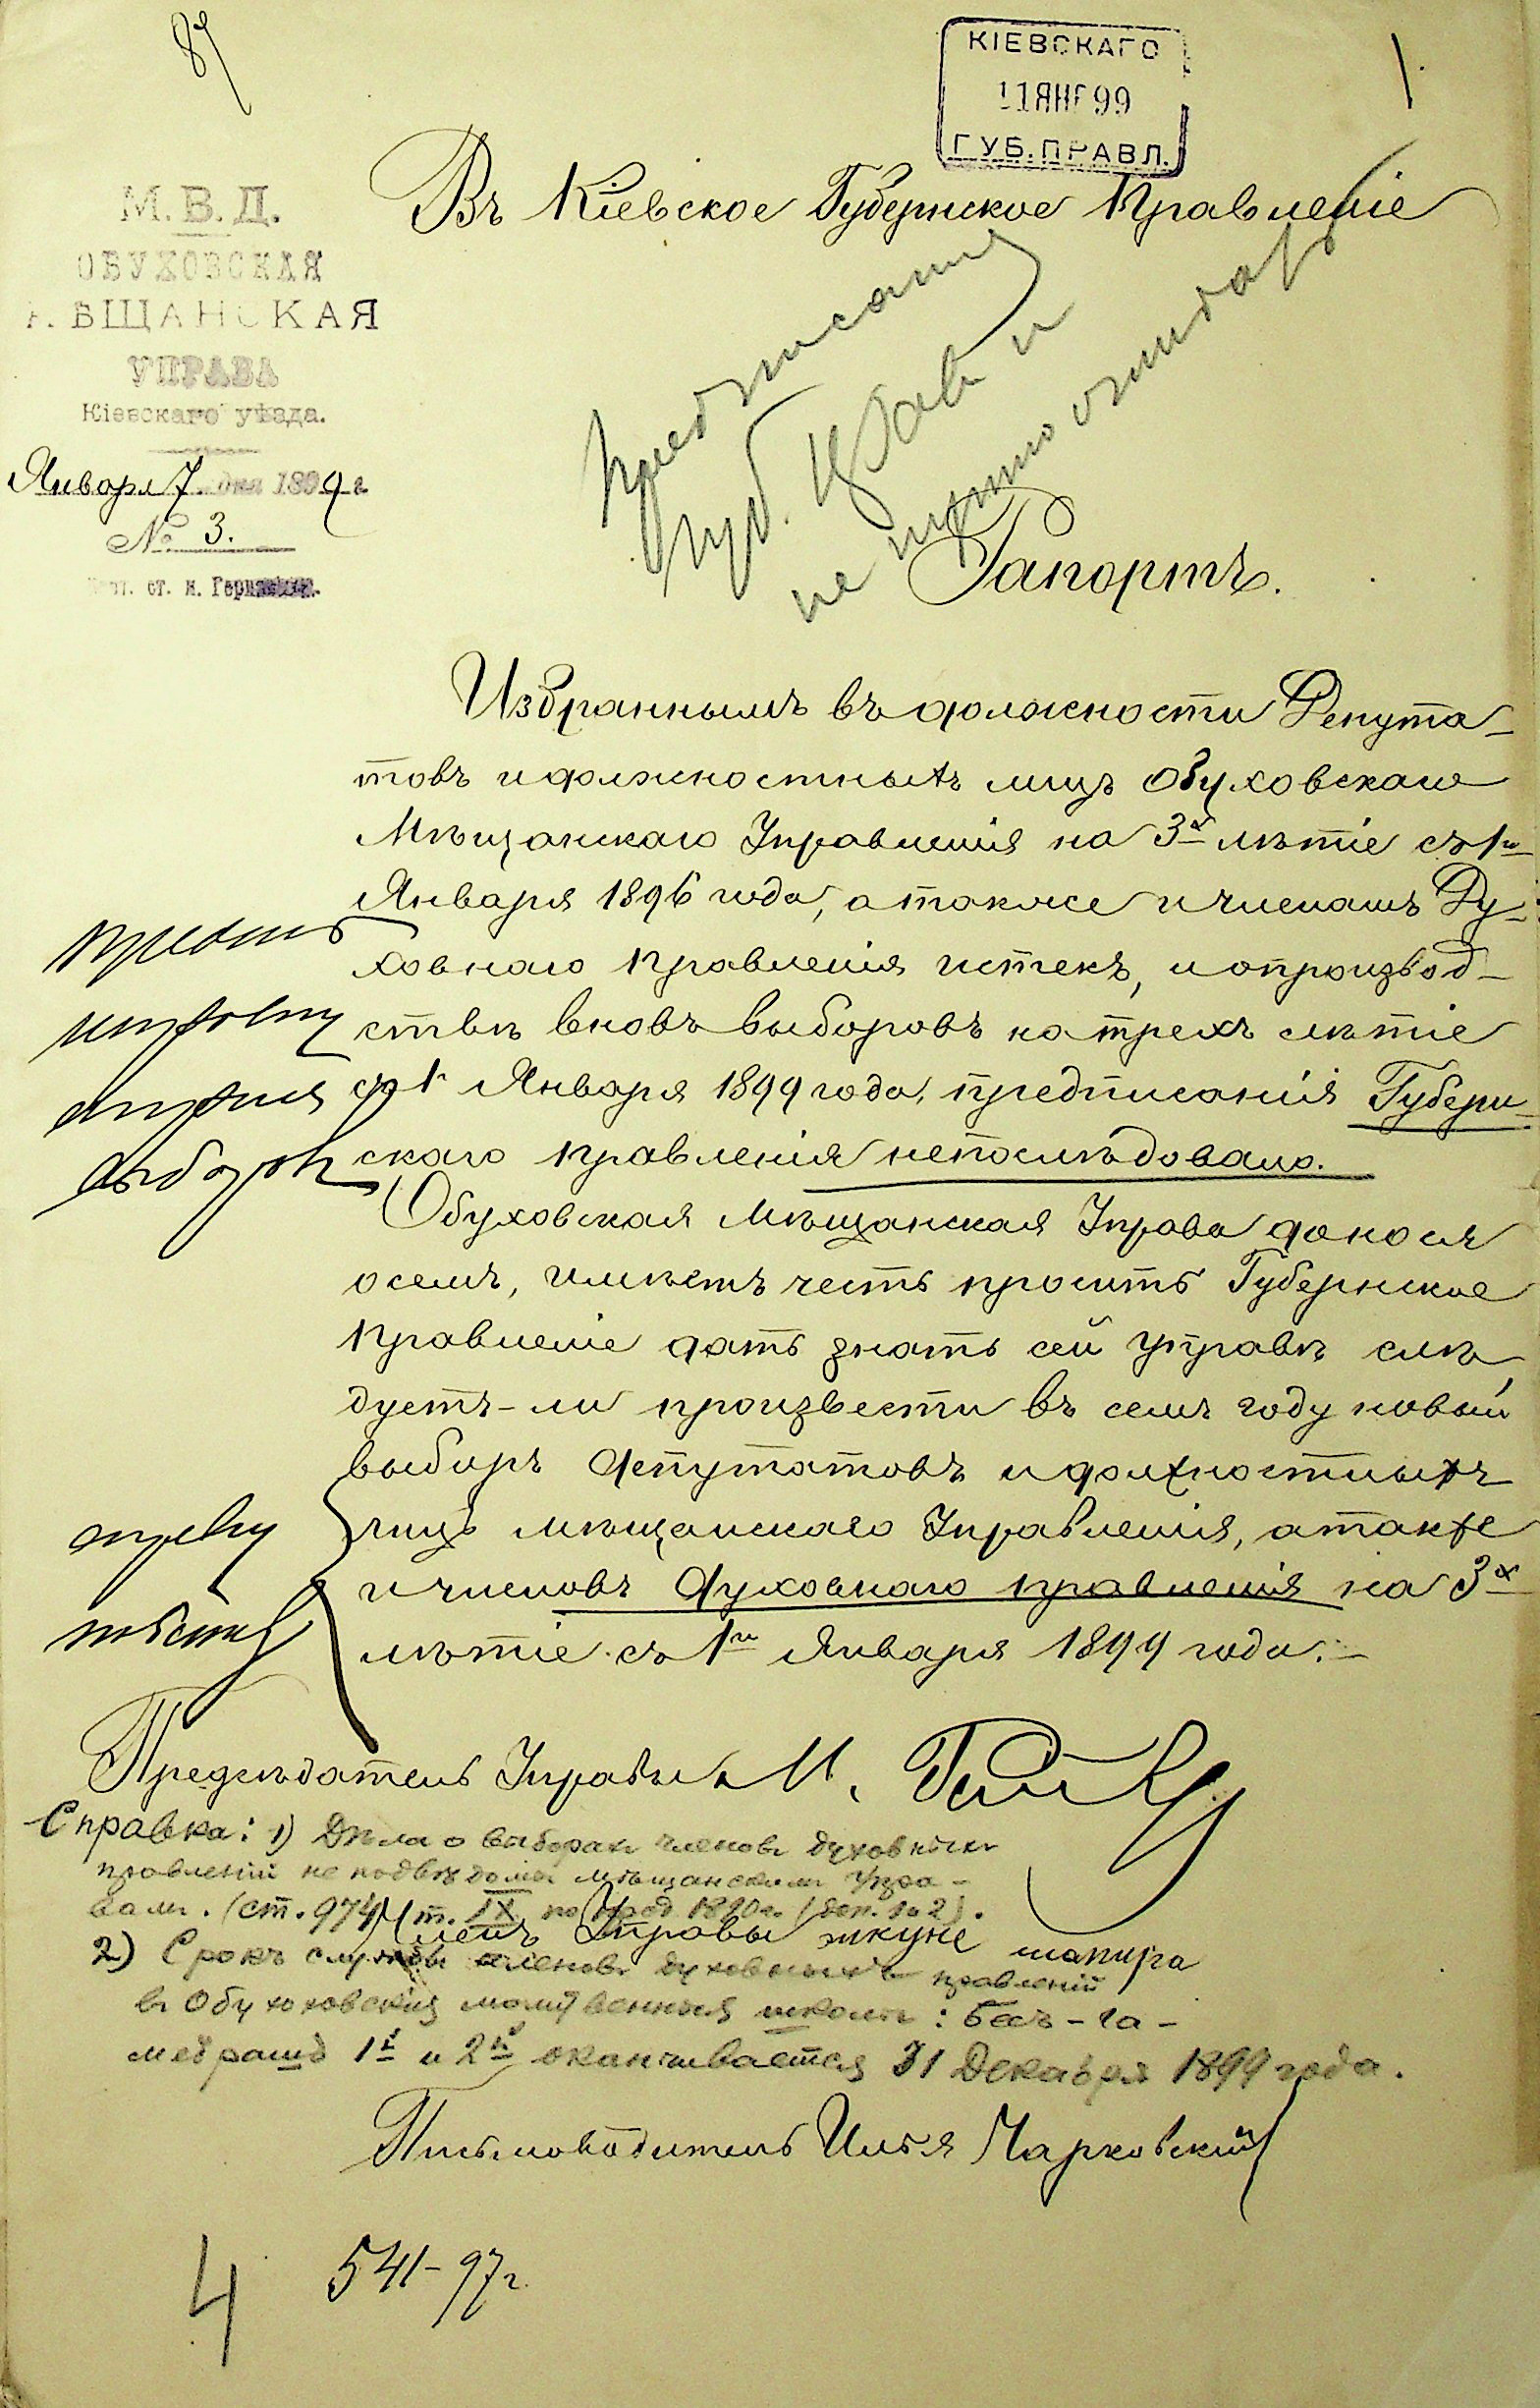 87
1.
КІЕВСКАГО
11 ЯНГ 99
ГУБ. ПРАВЛ.
М. В. Д.
ОБУХОВСКАЯ
МѢЩАНСКАЯ
УПРАВА
Кіевскаго уѣзда.
Января 7 дня 1899 г.
№ 3.
ст. н.
Въ Кіевское Губернское Правленіе
предписанія
Губ. Правл. и
не нужно ожидать
Рапортъ.
Избраннымъ въ должности Депута-
товъ и должностныхъ лицъ Обуховскаго
Мѣщанскаго Управленія на 3х лѣтіе съ 1го
Января 1896 года, а также и членамъ Ду-
ховнаго правленія истекъ, и о производ-
ствѣ вновь выборовъ на трехъ лѣтіе
съ 1 Января 1899 года, предписанія Губерн-
скаго правленія непослѣдовало.
Обуховская Мѣщанская Управа донося
о семъ, имѣетъ честь просить Губернское
Правленіе дать знать сей Управѣ слѣ-
дуетъ-ли произвести въ семъ году новый
выборъ депутатовъ и должностныхъ
лицъ мѣщанскаго Управленія, а также
и членовъ духовнаго правленія на 3х
лѣтіе съ 1го Января 1899 года.
выборовъ
справку
Предсѣдатель Управы М.
Справка: 1) Дѣла о выборахъ членовъ духовныхъ
правленій не подвѣдомы мѣщанскимъ Упра-
вамъ. (ст. 974 т. IX по прод. 1890 г. (доп. 1 и 2).
Членъ Управы Янкуне Шапира
2) Срокъ службы членовъ духовныхъ правленій
въ Обуховскія молитвенныя школы: Бесъ-га-
медрашъ 1й и 2й оканчивается 31 Декабря 1899 года.
Письмоводитель Илья Чарковскій
4
541-97 г.